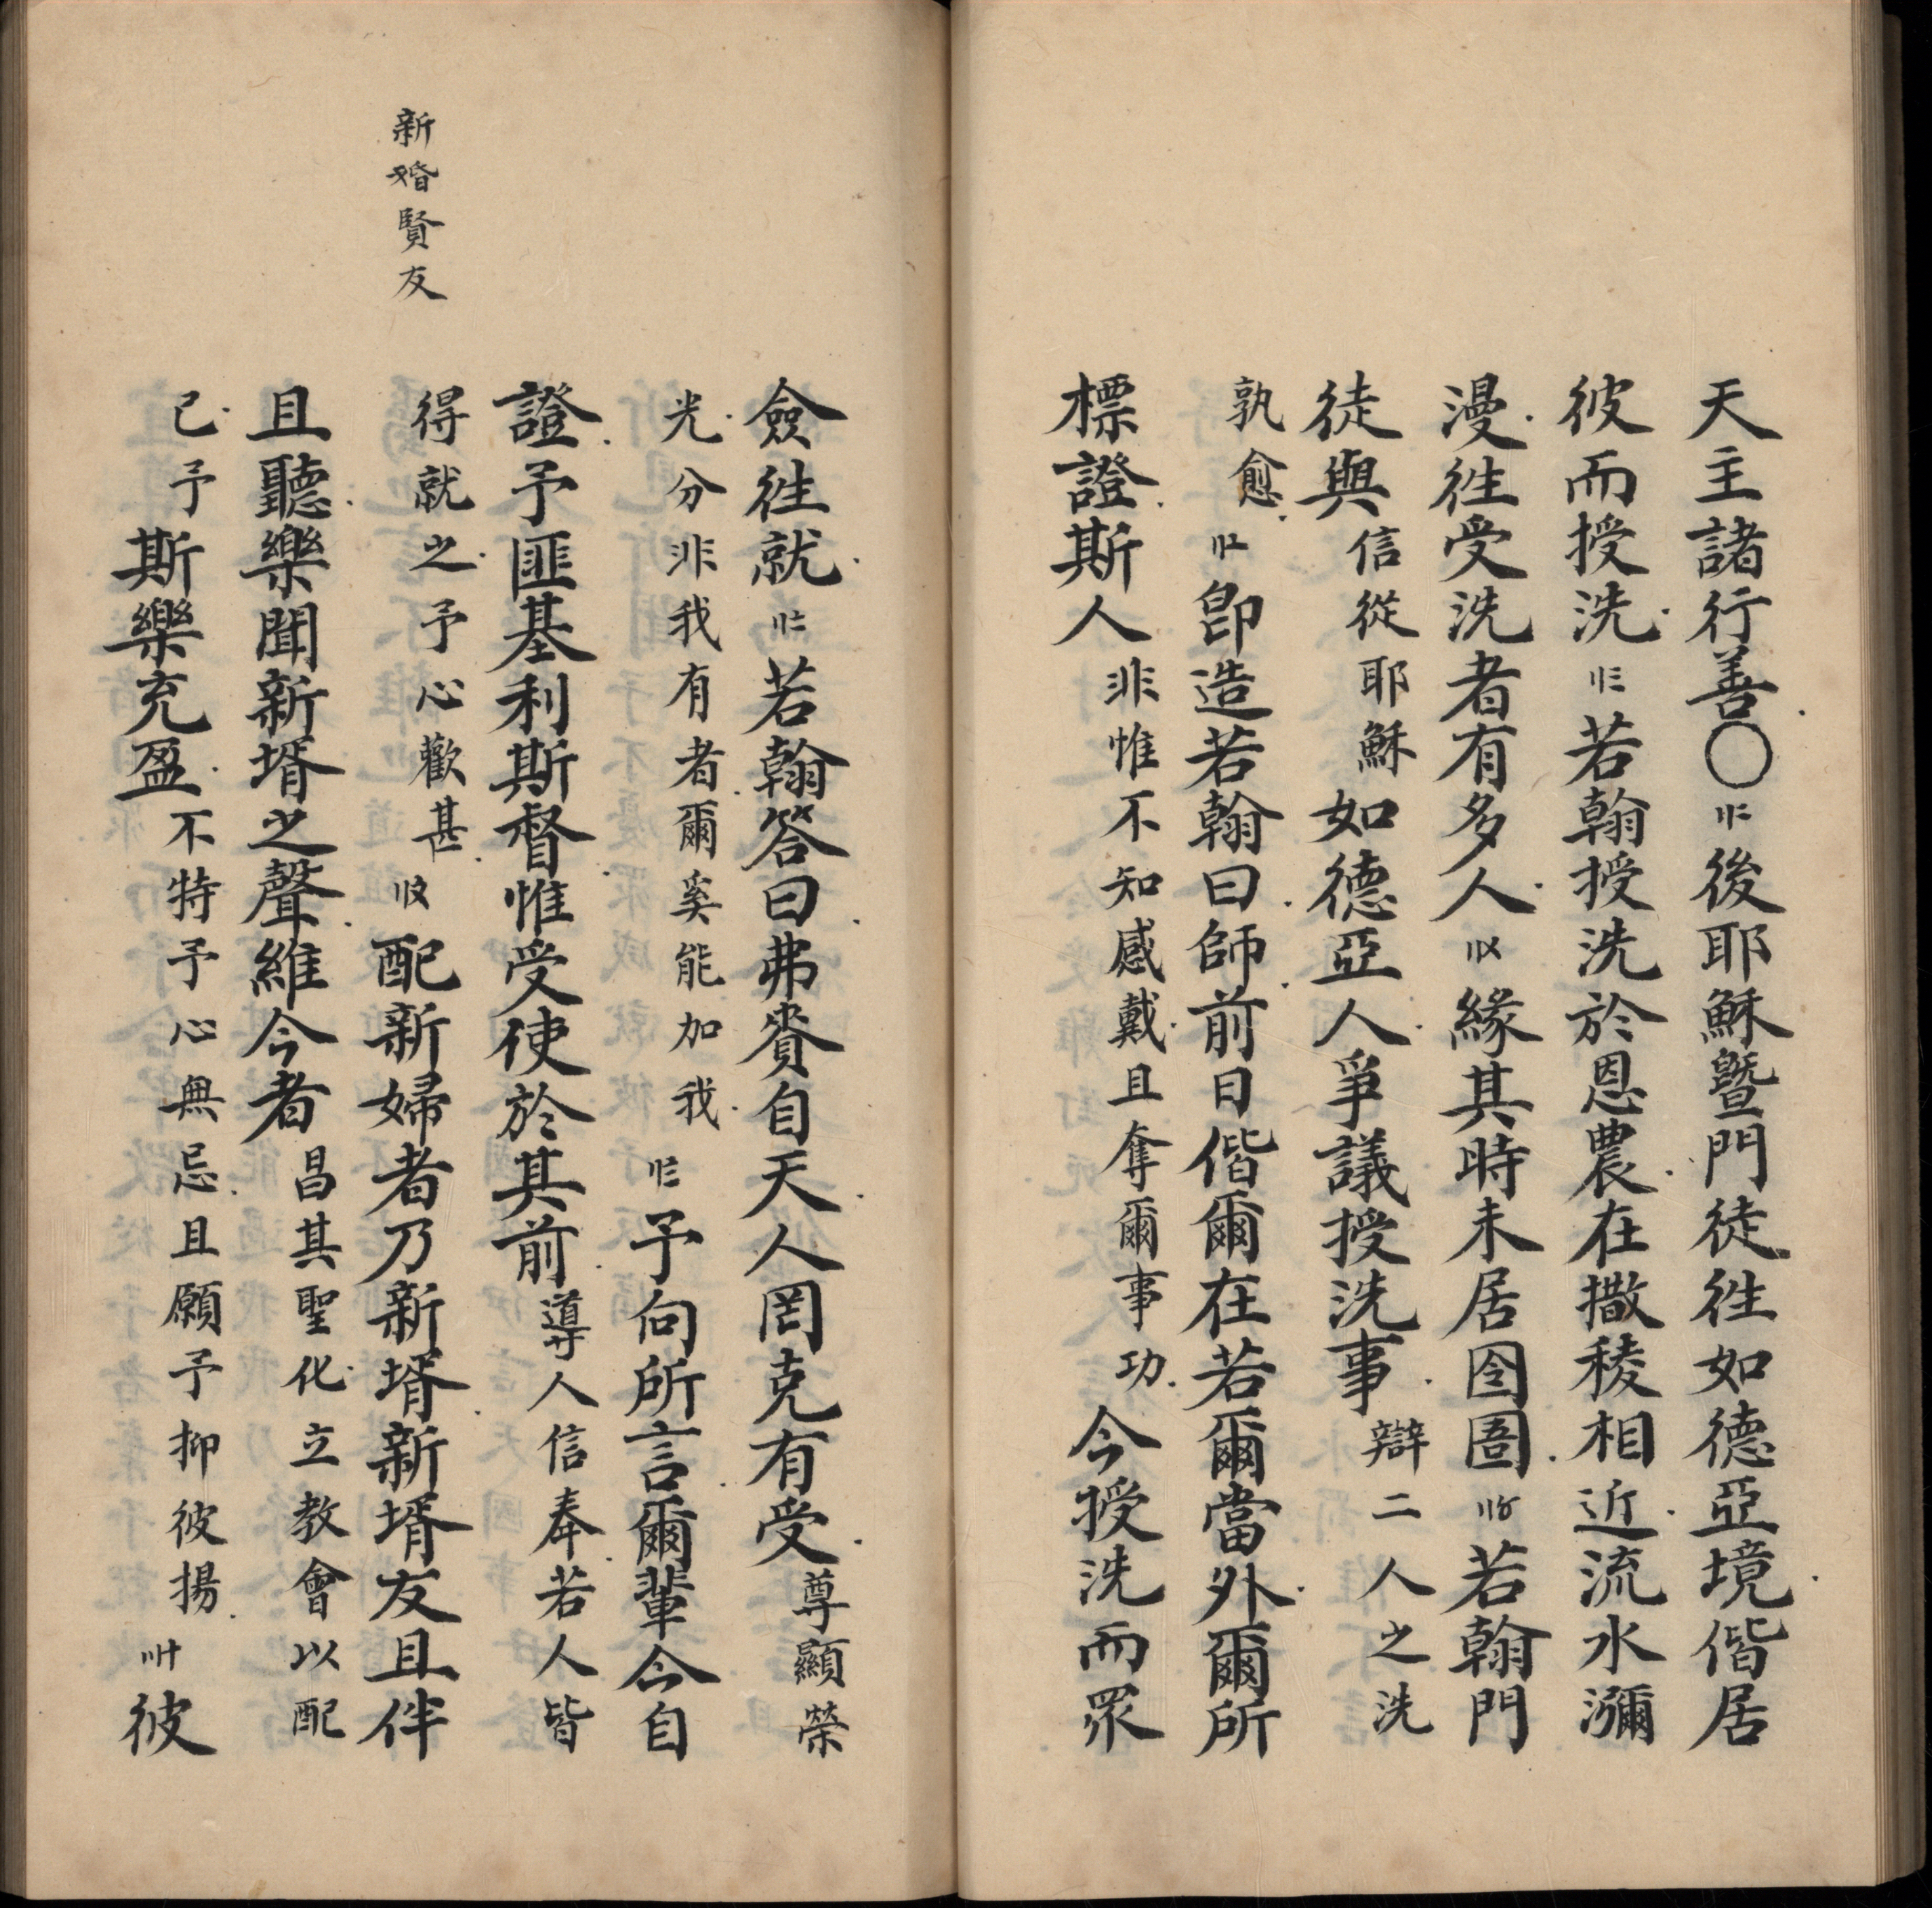 天主諸行善〇〢二後耶穌曁門徒徃如德亞境偕居
彼而授洗〢三若翰授洗於恩農在撒稜相近流水瀰
漫徃受洗者有多人〢〤緣其時未居囹圄〢〥若翰門
徒與信從耶穌如德亞人爭議授洗事辯二人之洗
孰愈〢〦卽造若翰曰師前日偕爾在若爾當外爾所
標證斯人非惟不知感戴且奪爾事功今授洗而眾
僉徃就〢〧若翰答曰弗賫自天人罔克有受尊顯榮
光分非我有者爾奚能加我〢〨予向所言爾輩今自
證予匪基利斯督惟受使於其前導人信奉若人皆
新婚賢友
得就之予心歡甚〢〩配新婦者乃新壻新壻友且伴
且聽樂聞新壻之聲維今者昌其聖化立教會以配
已予斯樂充盈不特予心無忌且願予抑彼揚〣十彼